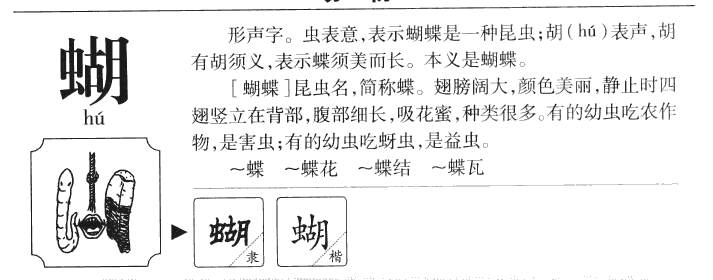 蝴
hú
形声字。虫表意,表示蝴蝶是一种昆虫;胡(hú)表声,胡
有胡须义,表示蝶须美而长。本义是蝴蝶。
[蝴蝶]昆虫名,简称蝶。翅膀阔大,颜色美丽,静止时四
翅竖立在背部,腹部细长,吸花蜜,种类很多。有的幼虫吃农作
物,是害虫;有的幼虫吃蚜虫,是益虫。
~蝶 ~蝶花 ~蝶结 ~蝶瓦
蝴 隶
蝴 楷